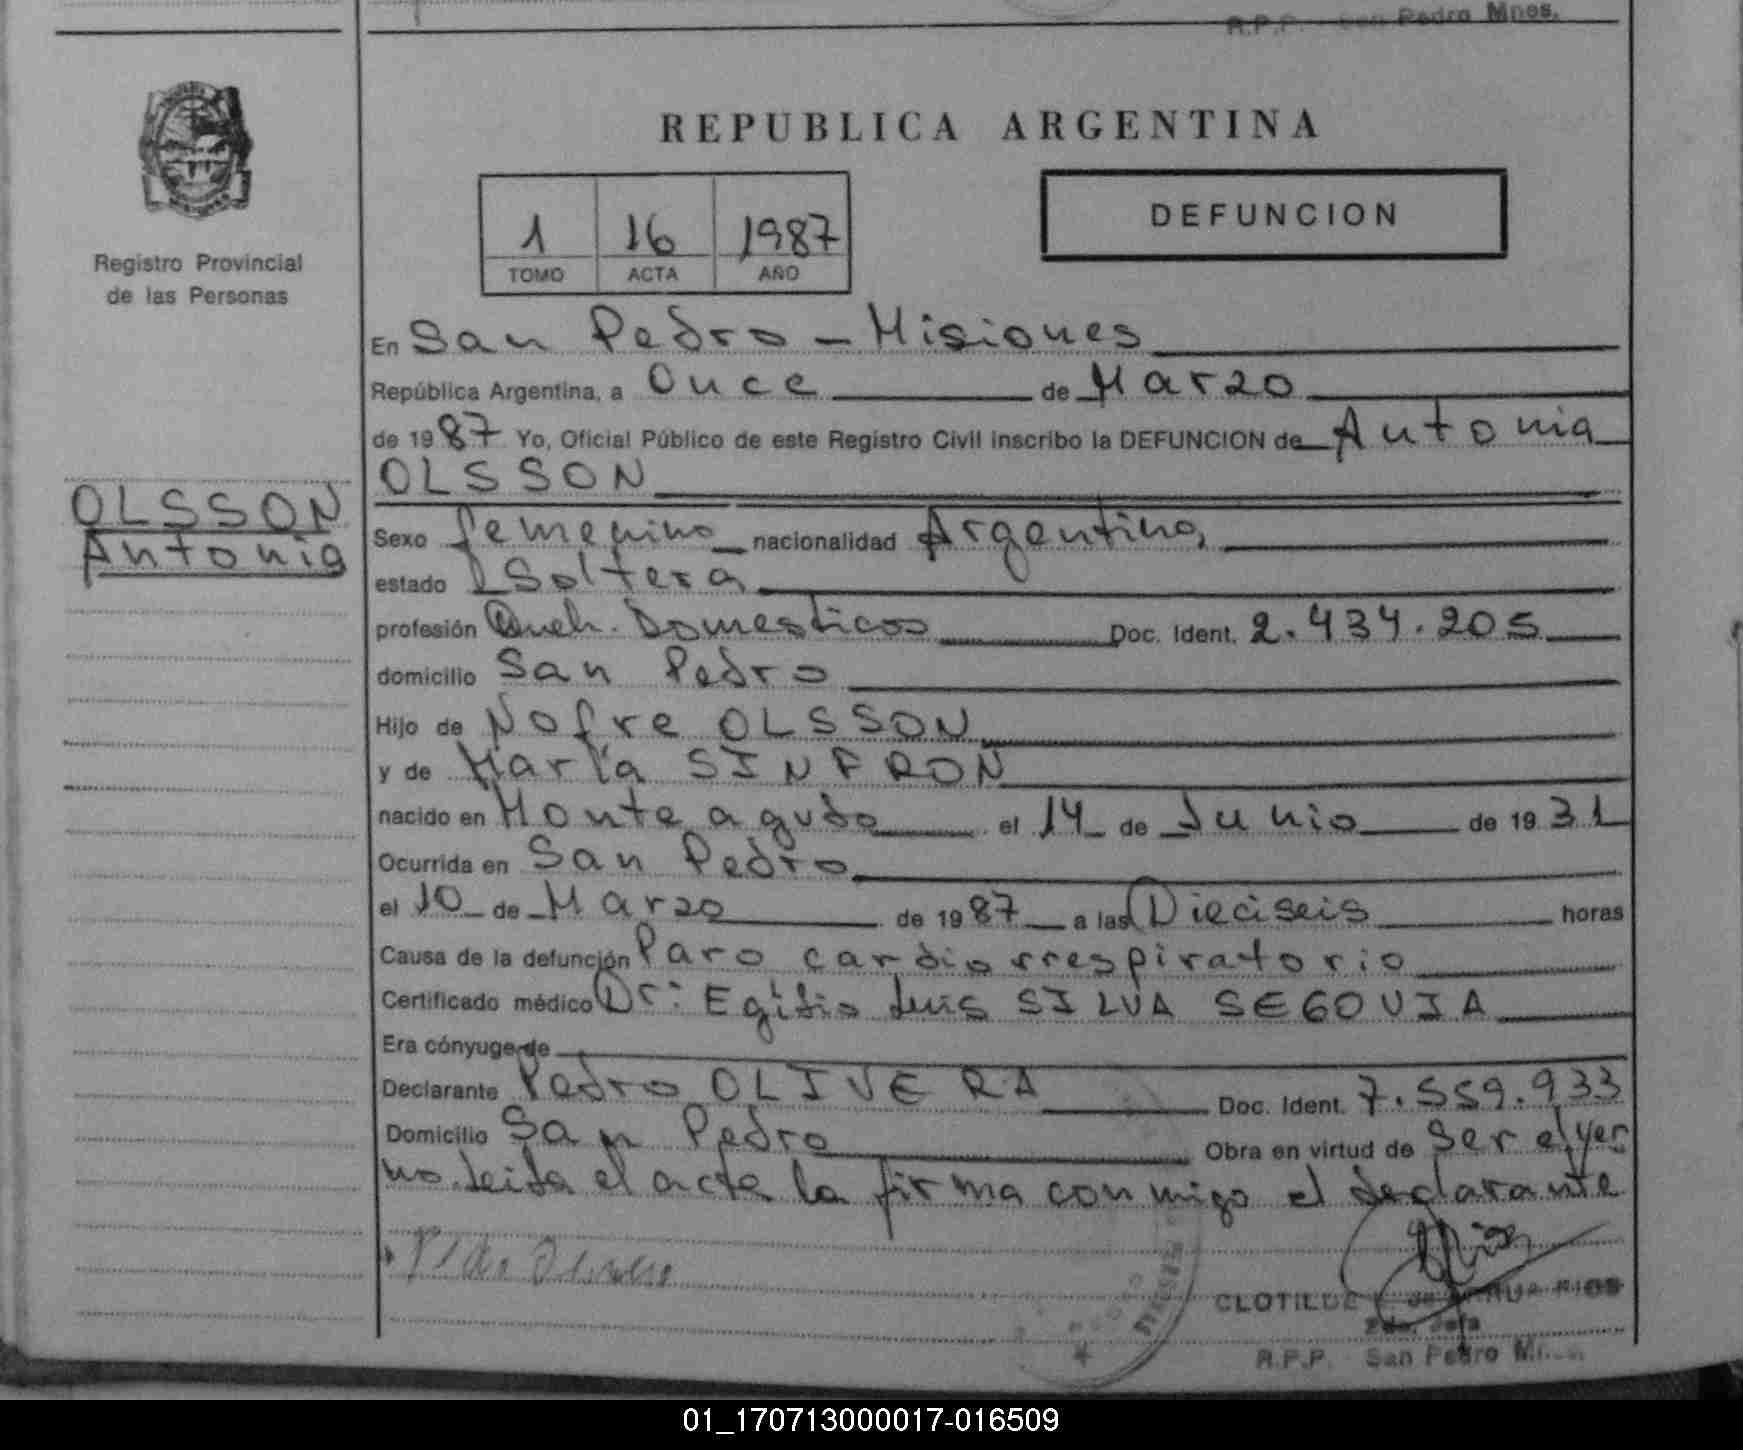 R.P.P. San Pedro Mnes.
REPUBLICA ARGENTINA
1 16 1987
TOMO ACTA AÑO
DEFUNCION
Registro Provincial
de las Personas
OLSSON
Antonia
En San Pedro - Misiones
República Argentina, a Once de Marzo
de 1987 Yo, Oficial Público de este Registro Civil inscribo la DEFUNCION de Antonia
OLSSON
Sexo femenino nacionalidad Argentina
estado Soltera
profesión Queh. Domesticos Doc. Ident. 2.434.205
domicilio San Pedro
Hijo de Nofre OLSSON
y de María SINFRON
nacido en Monteagudo el 14 de Junio de 1931
Ocurrida en San Pedro
el 10 de Marzo de 1987 a las Dieciseis horas
Causa de la defunción Paro cardiorrespiratorio
Certificado médico Dr: Egidio Luis SILVA SEGOVIA
Era cónyuge de
Declarante Pedro OLIVERA Doc. Ident. 7.559.933
Domicilio San Pedro Obra en virtud de Ser el yer
no. Leida el acta la firma conmigo el declarante
Pedro
CLOTILDE RIOS
Jefa
R.P.P. San Pedro
01_170713000017-016509